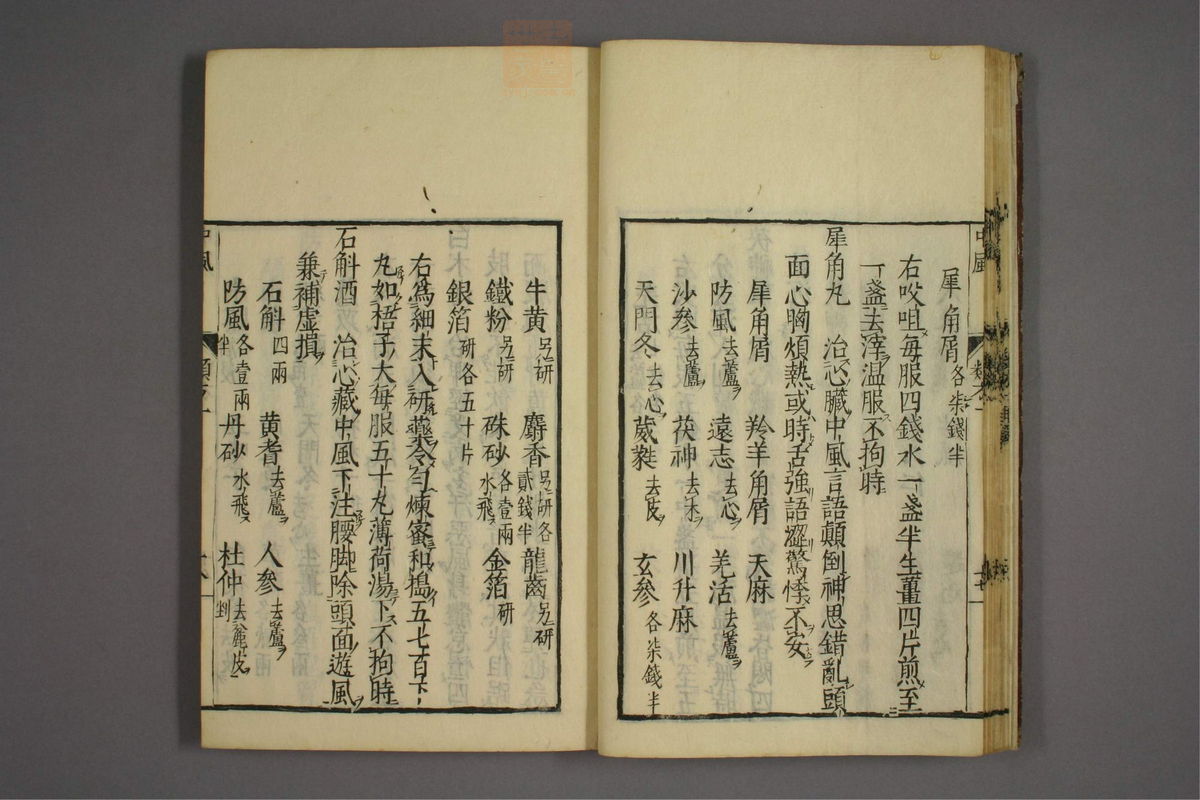 犀角屑各柒錢半
右㕮咀每服四錢水一盞半生薑四片煎至
一盞去滓溫服不拘時
犀角丸　治心臟中風言語顛倒神思錯亂頭
面心胸煩熱或時舌強語澀驚悸不安
犀角屑　羚羊角屑　天麻
防風去蘆　遠志去心　羌活去蘆
沙參去蘆　茯神去木　川升麻
天門冬去心　葳蕤去皮　玄參各柒錢半
牛黃另研　麝香另研各貳錢半　龍齒另研
鐵粉另研　硃砂各壹兩水飛　金箔研
銀箔研各五十片
右為細末入研藥令勻煉蜜和搗五七百下
丸如梧子大每服五十丸薄荷湯下不拘時
石斛酒　治心藏中風下注腰脚除頭面遊風
兼補虛損
石斛四兩　黃耆去蘆　人參去蘆
防風各壹兩半　丹砂水飛　杜仲去麄皮剉
中風
類之一